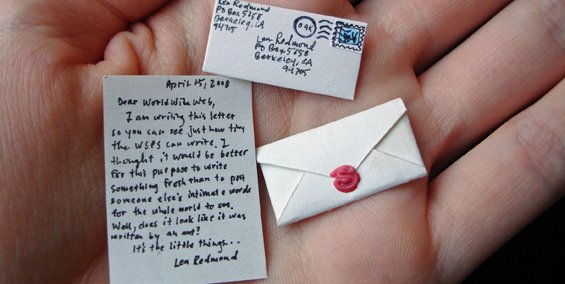 Lea Redmond
PO Box
Berkeley, CA
94705
Lea Redmond
PO Box
Berkeley, CA
94705
April 15, 2008
Dear World Wide Web,
I am writing this letter
so you can see just how tiny
the WSPS can write. I
thought it would be better
for this purpose to write
something fresh than to post
someone else's intimate words
for the whole world to see.
Well, does it look like it was
written by an ant?
It's the little things...
Lea Redmond
S